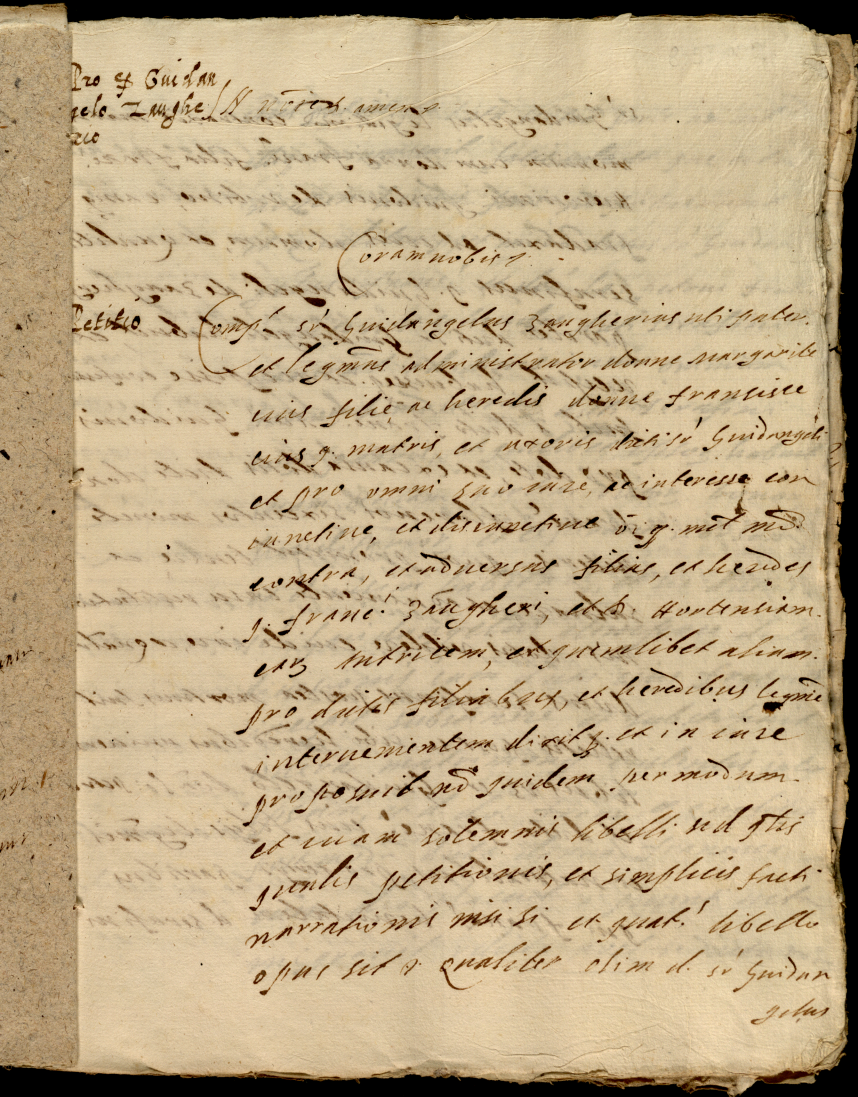 Pro sr Guidan
gelo Zaughe
rio
Coram nobis
Petitio
Comp.t sr Guidangelus Zaugherius uti pater
et legmus administrator donne Margarite
eius filie, ac heredis donne Francisce
eius q. matris, et uxoris dicti sr Guidangeli
et pro omni suo iure, ac interesse con
iunctine, et disiunctine
contra, et adversus filias, et heredes
q. Franc.i Zaugheri, et D. Hortensiam
ear tutricem, et quemlibet alium
pro dictis filiabus, et heredibus legme
intervenientem dixit et in iure
proposuit nõ quidem per modum
et viam solemnis libelli sed
qualis petitionis, et simplicis facti
narrationis nisi si et quat.s libello
opus sit Qualiter olim d. sr Guidan
gelus